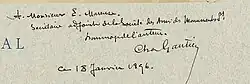 A Monsieur E.
Secrétaire adjoint de la Société des Amis des Monuments
Hommage de l'auteur
AL
Ch. Gautier
Ce 18 Janvier 1896.